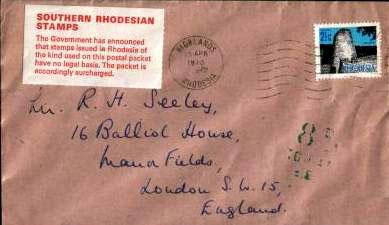 SOUTHERN RHODESIAN
STAMPS
The Government has announced
that stamps issued in Rhodesia of
the kind used on this postal packet
have no legal basis. The packet is
accordingly surcharged.
HIGHLANDS
APR
1970
RHODESIA
2½c
RHODESIA
Mr. R. H. Seeley,
16 Balliol House,
Manor Fields,
London S.W.15,
England.
8